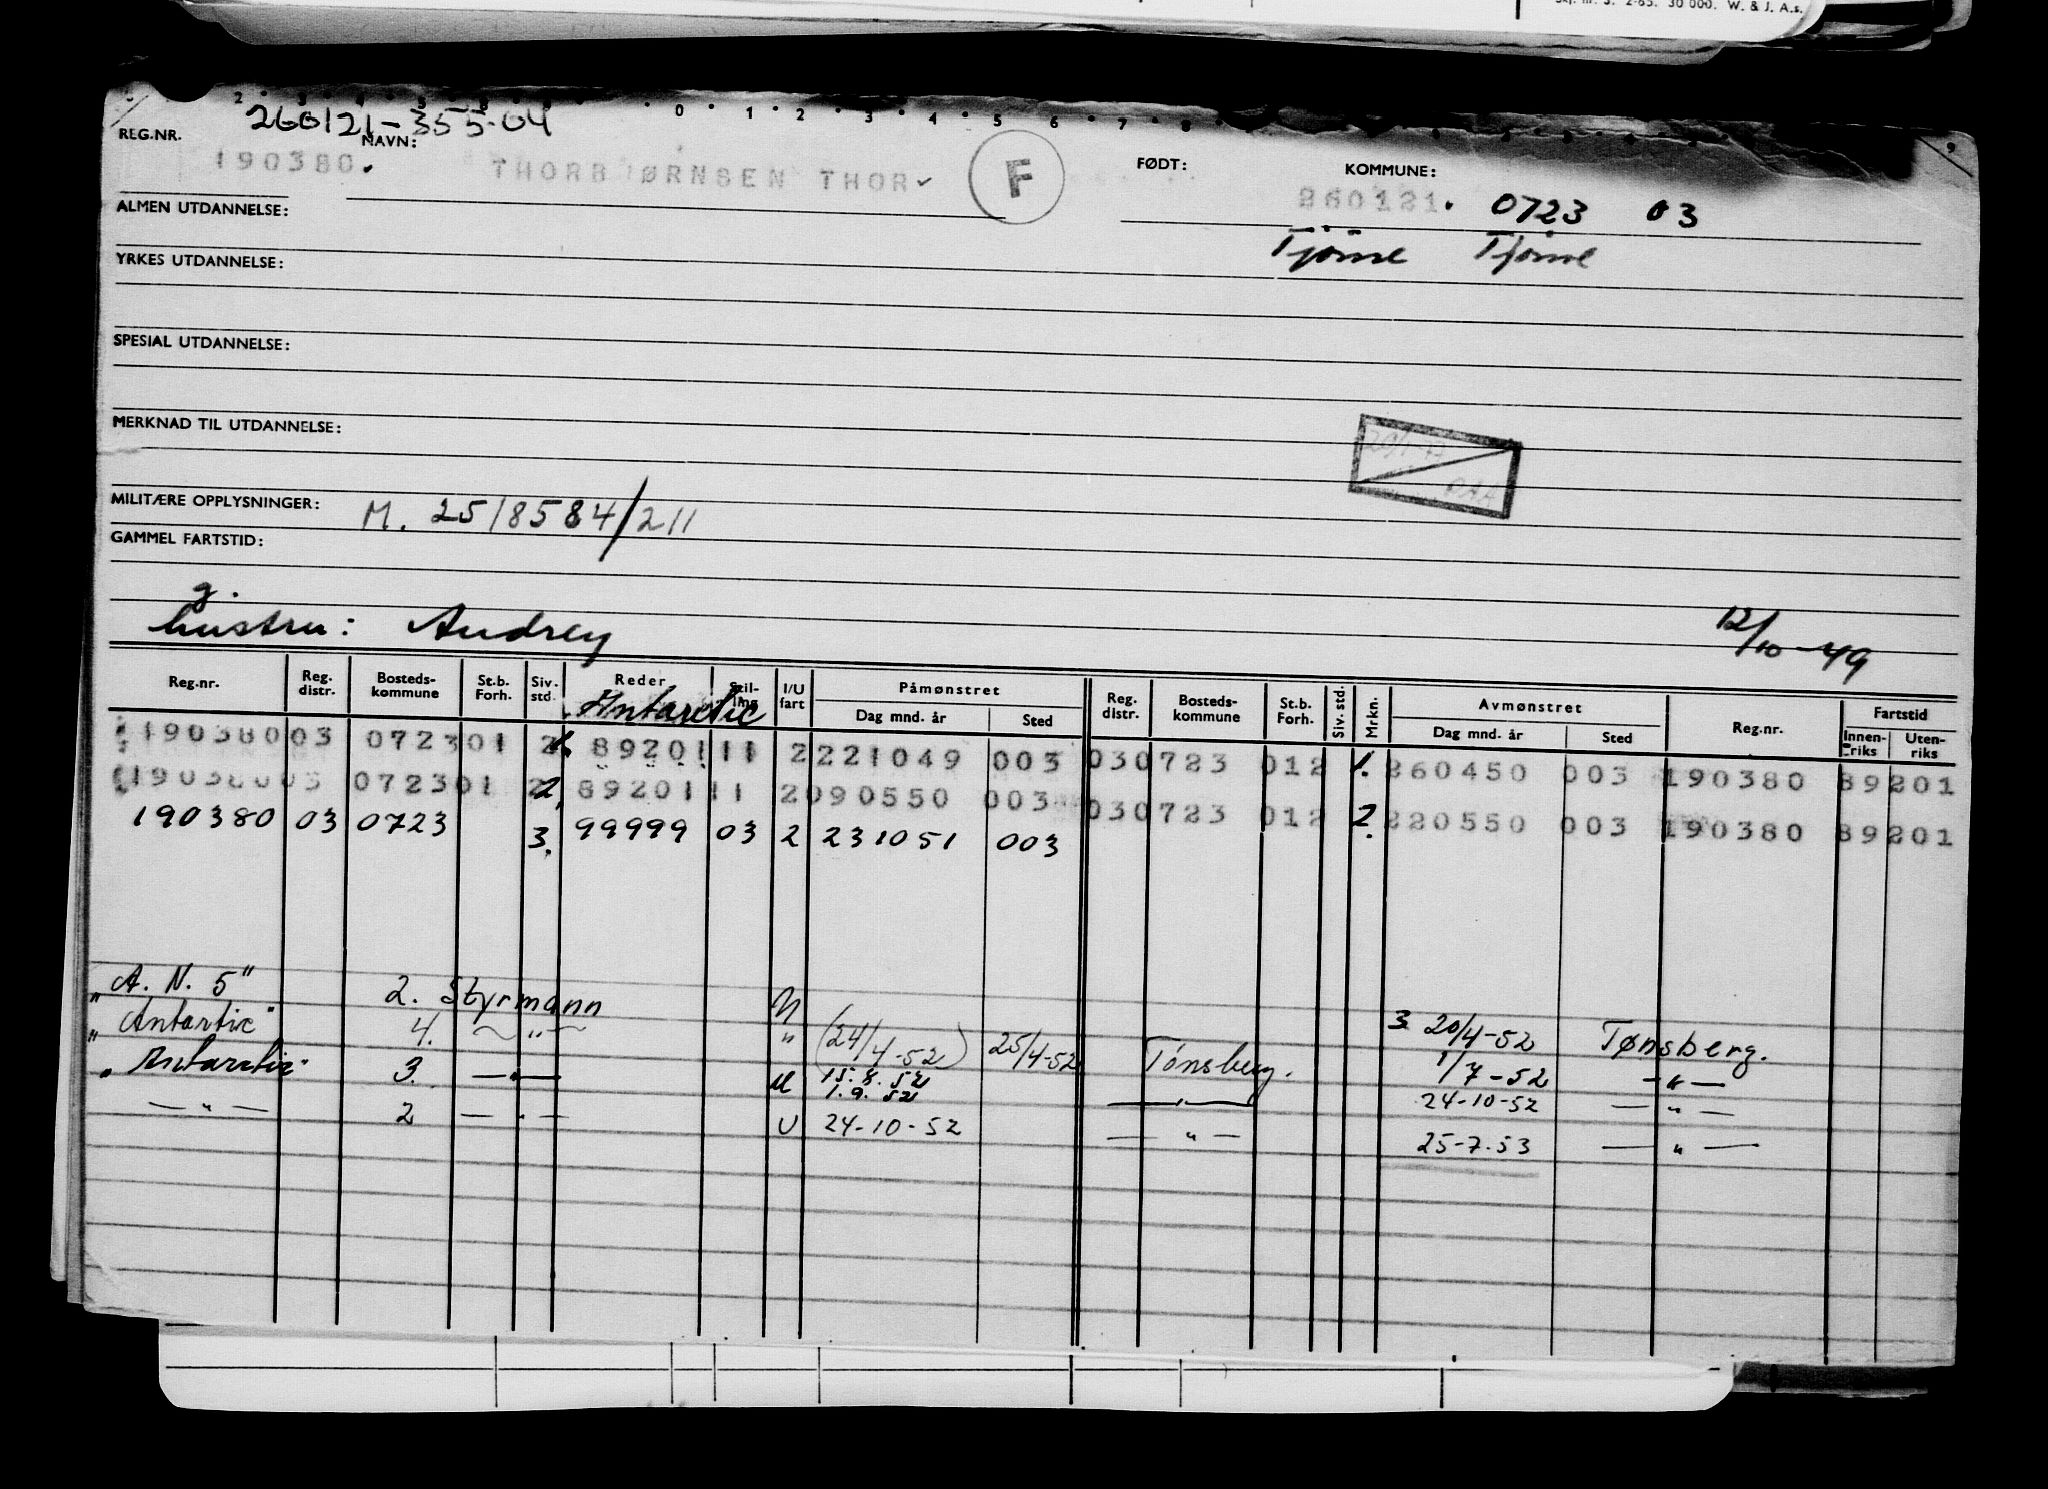 Skj. nr. 3. 2-65. 30 000. W. & J. A.s.
2 3 4 5 6 8 0 1 2 3 4 5 6 7 8 9
260121-355-04
REG.NR. NAVN: FØDT: KOMMUNE:
190380. THORBJØRNSEN THOR F 260121. 0723 03
ALMEN UTDANNELSE: Tjöme Tjöme
YRKES UTDANNELSE:
SPESIAL UTDANNELSE:
MERKNAD TIL UTDANNELSE:
MILITÆRE OPPLYSNINGER: M. 2518584/211
GAMMEL FARTSTID:
g.
hustru: Audrey 12/10-49
Reg.nr. Reg. distr. Bosteds-kommune St.b. Forh. Siv. std. Reder Stil-ling I/U fart Påmønstret Dag mnd. år Sted Reg. distr. Bosteds-kommune St.b. Forh. Siv. std. Mrkn. Avmønstret Dag mnd. år Sted Reg.nr. Fartstid Innen-riks Uten-riks
Antarctic
190380 03 0723 01 2 1. 89201 11 2 221049 003 03 0723 01 2 1. 260450 003 190380 89201
190380 03 0723 01 2 2. 89201 11 2 090550 003 03 0723 01 2 2. 220550 003 190380 89201
190380 03 0723 3. 99999 03 2 231051 003
"A. N. 5" 2. Styrmann U 3. 20/4-52 Tønsberg.
"Antartic" 4. — " — " (24/4-52) 25/4-52 Tönsberg. 1/7-52 — " —
"Antarctic" 3. — " — U 15.8.52 — " — 24-10-52 — " —
1.9.52
— " — 2 — " — U 24-10-52 — " — 25-7.53 — " —